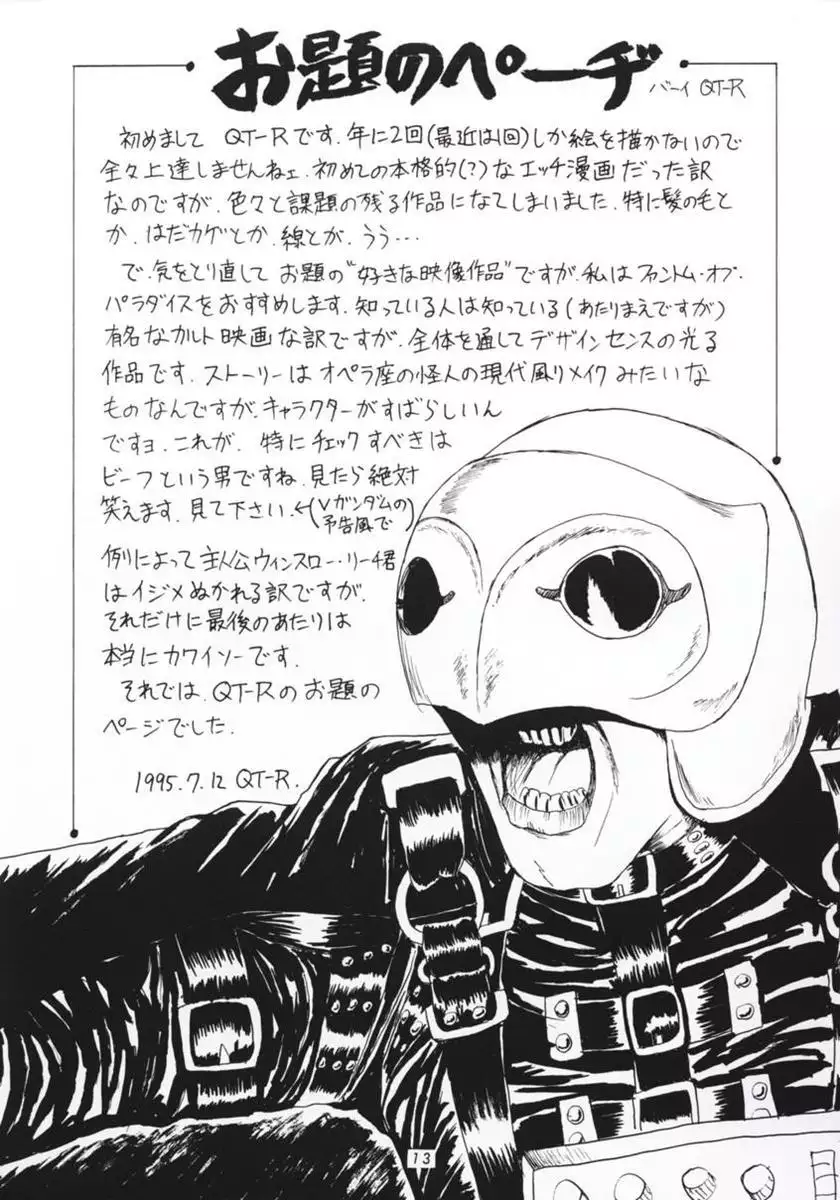 お題のページ
バーイ QT-R
初めまして QT-Rです.年に2回(最近は1回)しか絵を描かないので
全々上達しませんねェ.初めての本格的(?)なエッチ漫画だった訳
なのですが、色々と課題の残る作品になてしまいました.特に髪の毛と
か.はだカゲとか.線とか.うう…
で.気をとり直して お題の"好きな映像作品"ですが.私はファントム・オブ・
パラダイスをおすすめします.知っている人は知っている(あたりまえですが)
有名なカルト映画な訳ですが.全体を通してデザインセンスの光る
作品です.ストーリーはオペラ座の怪人の現代風リメイクみたいな
ものなんですが.キャラクターがすばらしいん
ですョ.これが.特にチェックすべきは
ビーフという男ですね.見たら絶対
笑えます.見て下さい.←(Vガンダムの予告風で)
例によって主人公ウィンスロー・リーチ君
はイジメぬかれる訳ですが.
それだけに最後のあたりは
本当にカワイソーです.
それでは.QT-Rのお題の
ページでした.
1995.7.12 QT-R.
13